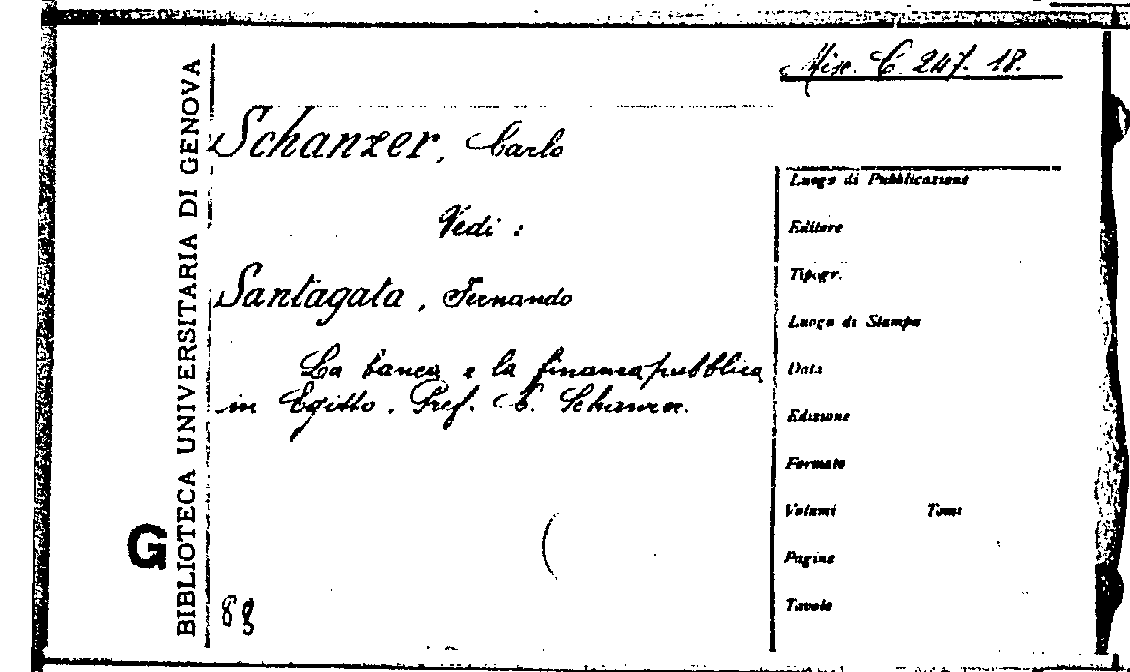 Misc. C. 247. 18.
Schanzer, Carlo
Vedi :
Santagata, Fernando
La banca e la finanza pubblica
in Egitto. Pref. C. Schanzer.
88
G
BIBLIOTECA UNIVERSITARIA DI GENOVA
Luogo di Pubblicazione
Editore
Tipogr.
Luogo di Stampa
Data
Edizione
Formato
Volumi Tomi
Pagine
Tavole